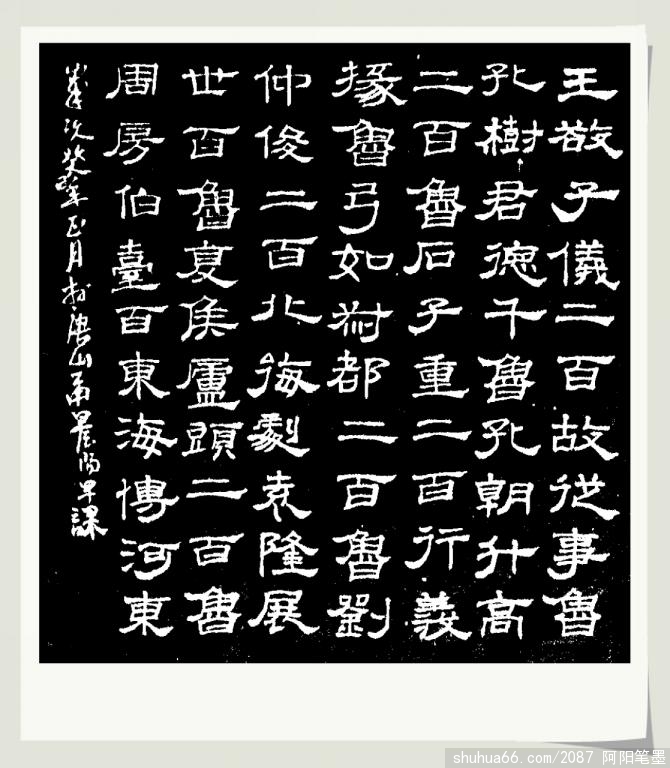 王敬子儀二百故從事魯
孔樹君德千魯孔朝升高
二百魯石子重二百行義
掾魯弓如叔都二百魯劉
仲俊二百北海劇袁隆展
世百魯夏侯廬頭二百魯
周房伯臺百東海傅河東
歲次癸年正月於唐山早課
shuhua66.com/2087 阿阳笔墨